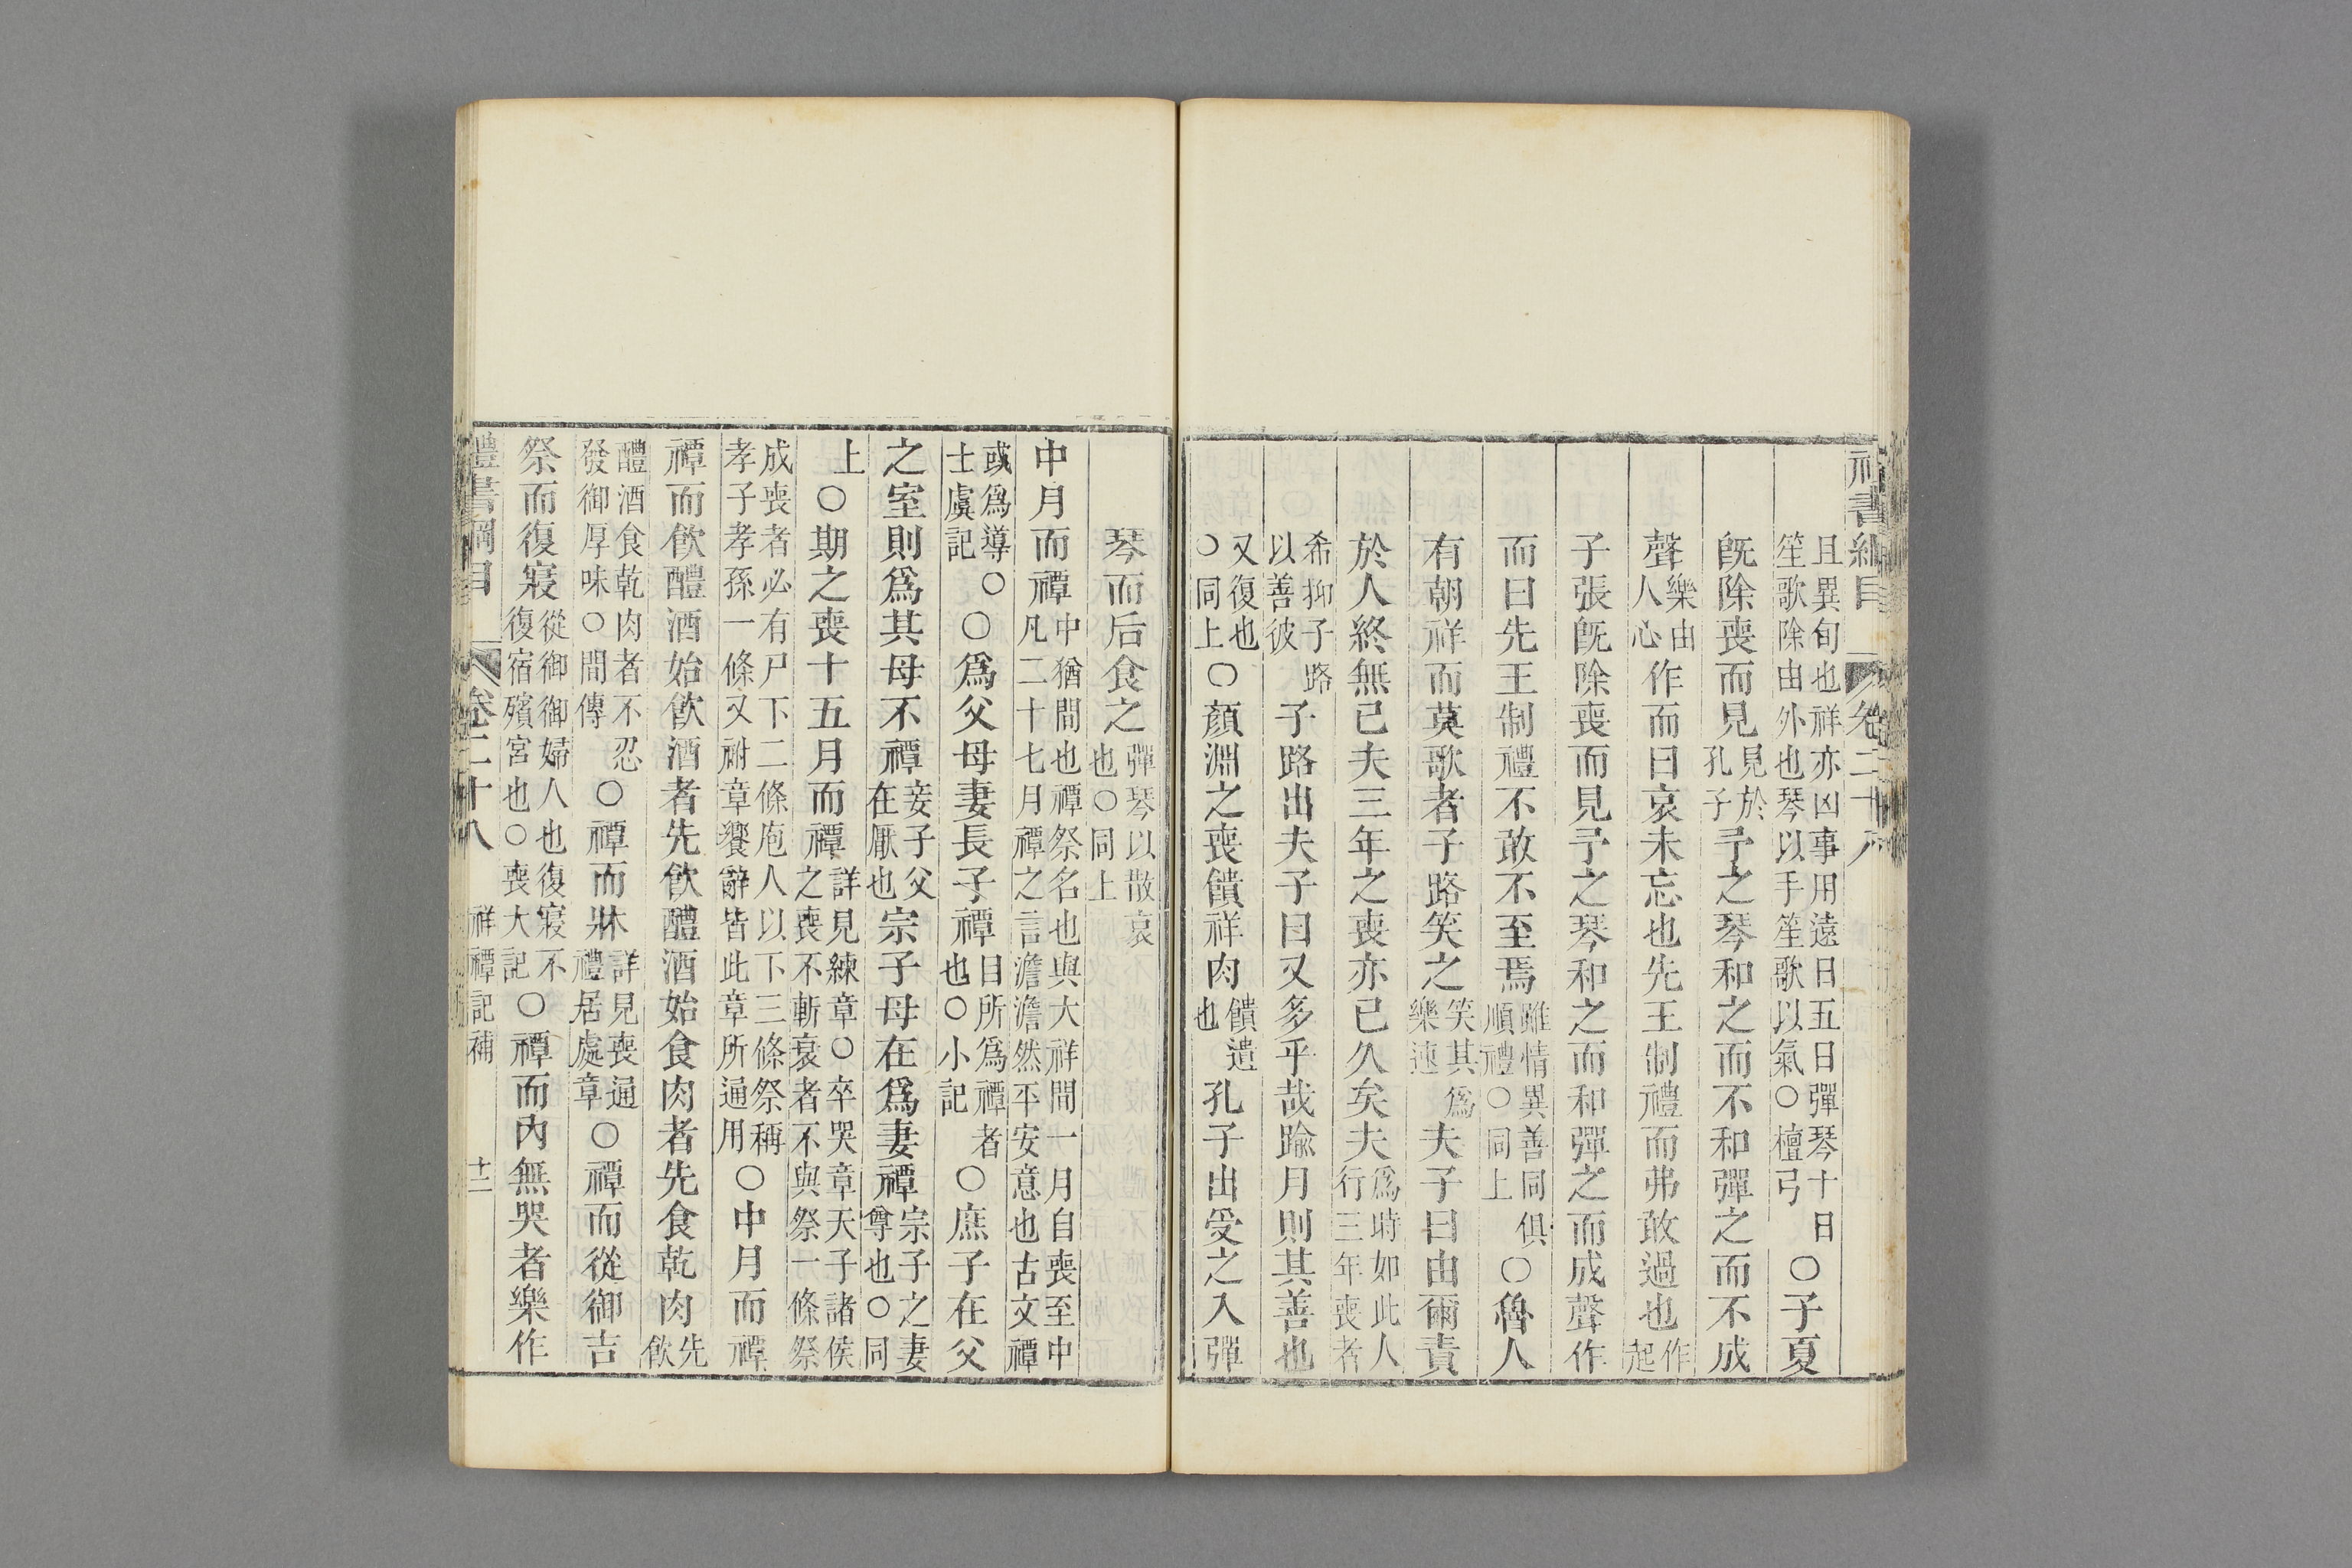 禮書綱目　卷二十八
且異旬也祥亦凶事用遠日五日彈琴十日笙歌除由外也琴以手笙歌以氣○檀弓○子夏
旣除喪而見見於孔子予之琴和之而不和彈之而不成
聲樂由人心作而曰哀未忘也先王制禮而弗敢過也作起
子張旣除喪而見予之琴和之而和彈之而成聲作
而曰先王制禮不敢不至焉雖情異善同俱順禮○同上○魯人
有朝祥而莫歌者子路笑之笑其爲樂速夫子曰由爾責
於人終無已夫三年之喪亦已久矣夫爲時如此人行三年喪者
希抑子路以善彼子路出夫子曰又多乎哉踰月則其善也
又復也○同上○顏淵之喪饋祥肉饋遺也孔子出受之入彈
琴而后食之彈琴以散哀也○同上
中月而禫中猶間也禫祭名也與大祥間一月自喪至中凡二十七月禫之言澹澹然平安意也古文禫
或爲導○士虞記○爲父母妻長子禫目所爲禫者也○小記○庶子在父
之室則爲其母不禫妾子父在厭也宗子母在爲妻禫宗子之妻尊也○同
上○期之喪十五月而禫詳見練章○卒哭章天子諸侯之喪不斬衰者不與祭一條祭
成喪者必有尸下二條庖人以下三條祭稱孝子孝孫一條又祔章饗辭皆此章所通用○中月而禫
禫而飮醴酒始飮酒者先飮醴酒始食肉者先食乾肉先飮
醴酒食乾肉者不忍發御厚味○間傳○禫而牀詳見喪通禮居處章○禫而從御吉
祭而復寢從御御婦人也復寢不復宿殯宮也○喪大記○禫而內無哭者樂作
禮書綱目　卷二十八　祥禫記補　十二